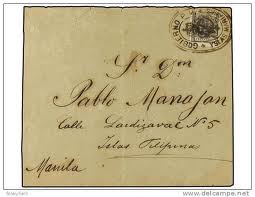 GOBIERNO
Sr. Dn
Pablo Manojan
Calle Lardizaval N 5
Islas Filipinas
Manila
delcampe.net